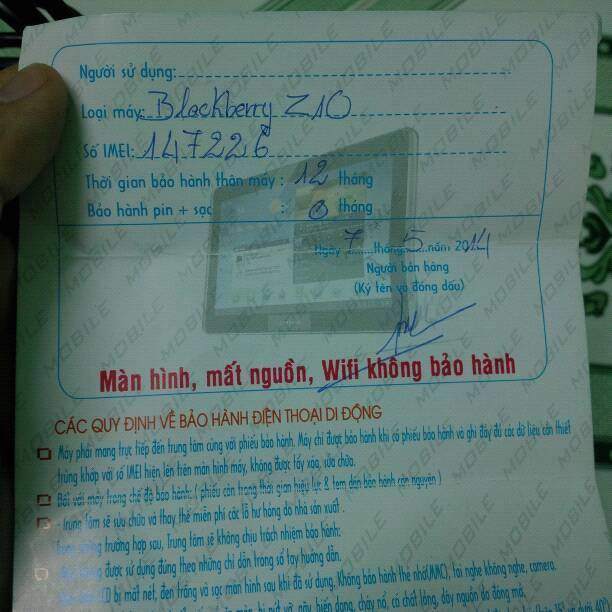 Người sử dụng:
Loại máy: Blackberry Z10
Số IMEI: 147226
Thời gian bảo hành thân máy : 12 tháng
Bảo hành pin + sạc : 0 tháng
Ngày 7 tháng 5 năm 2014
Người bán hàng
(Ký tên và đóng dấu)
Màn hình, mất nguồn, Wifi không bảo hành
CÁC QUY ĐỊNH VỀ BẢO HÀNH ĐIỆN THOẠI DI ĐỘNG
Máy phải mang trực tiếp đến trung tâm cùng với phiếu bảo hành. Máy chỉ được bảo hành khi có phiếu bảo hành và ghi đầy đủ các dữ liệu cần thiết
trùng khớp với số IMEI hiện lên trên màn hình máy, không được tẩy xóa, sửa chữa.
Đối với máy trong chế độ bảo hành: ( phiếu còn trong thời gian hiệu lực & tem dán bảo hành còn nguyên )
- trung tâm sẽ sửa chữa và thay thế miễn phí các lỗi hư hỏng do nhà sản xuất .
trường hợp sau, Trung tâm sẽ không chịu trách nhiệm bảo hành:
được sử dụng đúng theo những chỉ dẫn trong sổ tay hướng dẫn.
bị mất nét, đen trắng và sọc màn hình sau khi đã sử dụng. Không bảo hành thẻ nhớ(MMC), tai nghe không nghe, camera.
biến dạng, cháy nổ, có chất lỏng, dây nguồn do đóng mở,